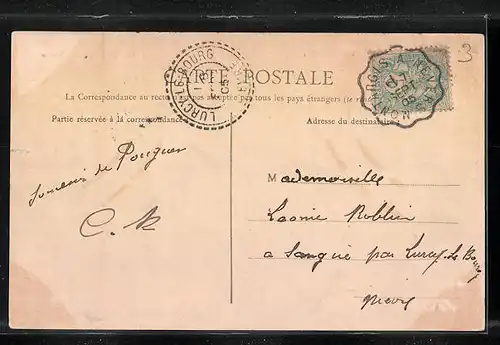 3
CARTE POSTALE
La Correspondance au recto n'est pas acceptée par tous les pays étrangers
Partie réservée à la correspondance
Adresse du destinataire
LURCY-LE-BOURG
MONTARGIS A NEVERS
7
SEPT
05
Souvenir de Pougues
C. K
Mademoiselle
Léonie Roblin
a Sangué par Lurcy-Le Bourg